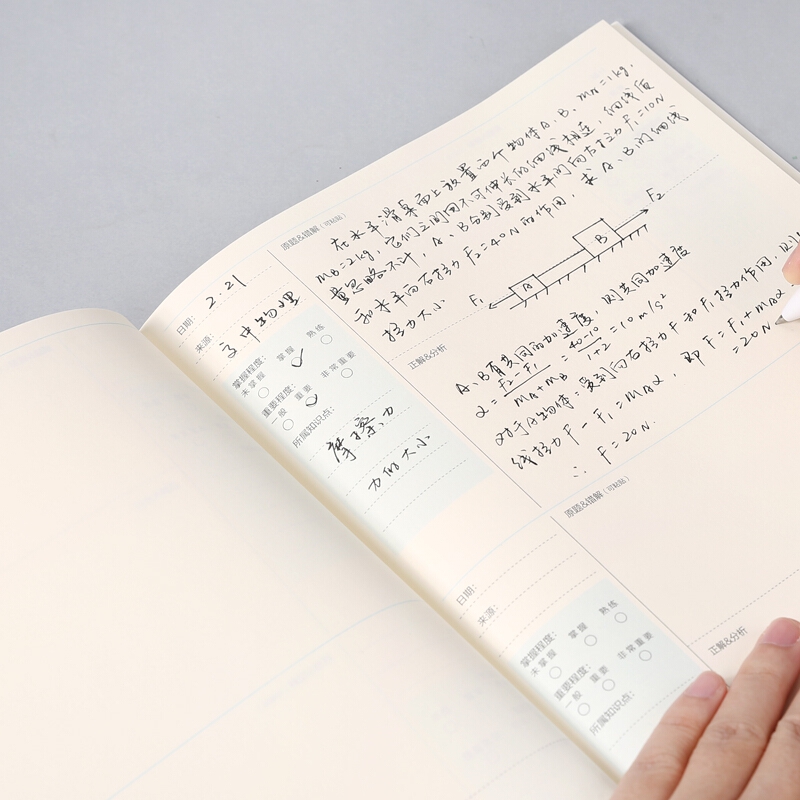 原题&错解(可粘贴)
在水平滑桌面上放置两个物体A、B、mA=1kg,
mB=2kg,它们之间用不可伸长的细线相连,细线质
量忽略不计,A、B分别受到水平间向左拉力F1=10N
和水平向右拉力F2=40N的作用,求A、B间细线
拉力大小
F1
A
B
F2
日期:
2.21
来源:
高中物理
掌握程度:
未掌握
掌握
熟练
重要程度:
一般
重要
非常重要
所属知识点:
摩擦力
力的大小
正解&分析
A、B有共同的加速度,则共同加速度
a=F2-F1/mA+mB=40-10/1+2=10m/s²
对于A物体:受到向右拉力F和F1拉力作用,则
线拉力F-F1=mAa,即F=F1+mAa
=20N
∴F=20N.
原题&错解(可粘贴)
日期:
来源:
掌握程度:
未掌握
掌握
熟练
重要程度:
一般
重要
非常重要
所属知识点:
正解&分析